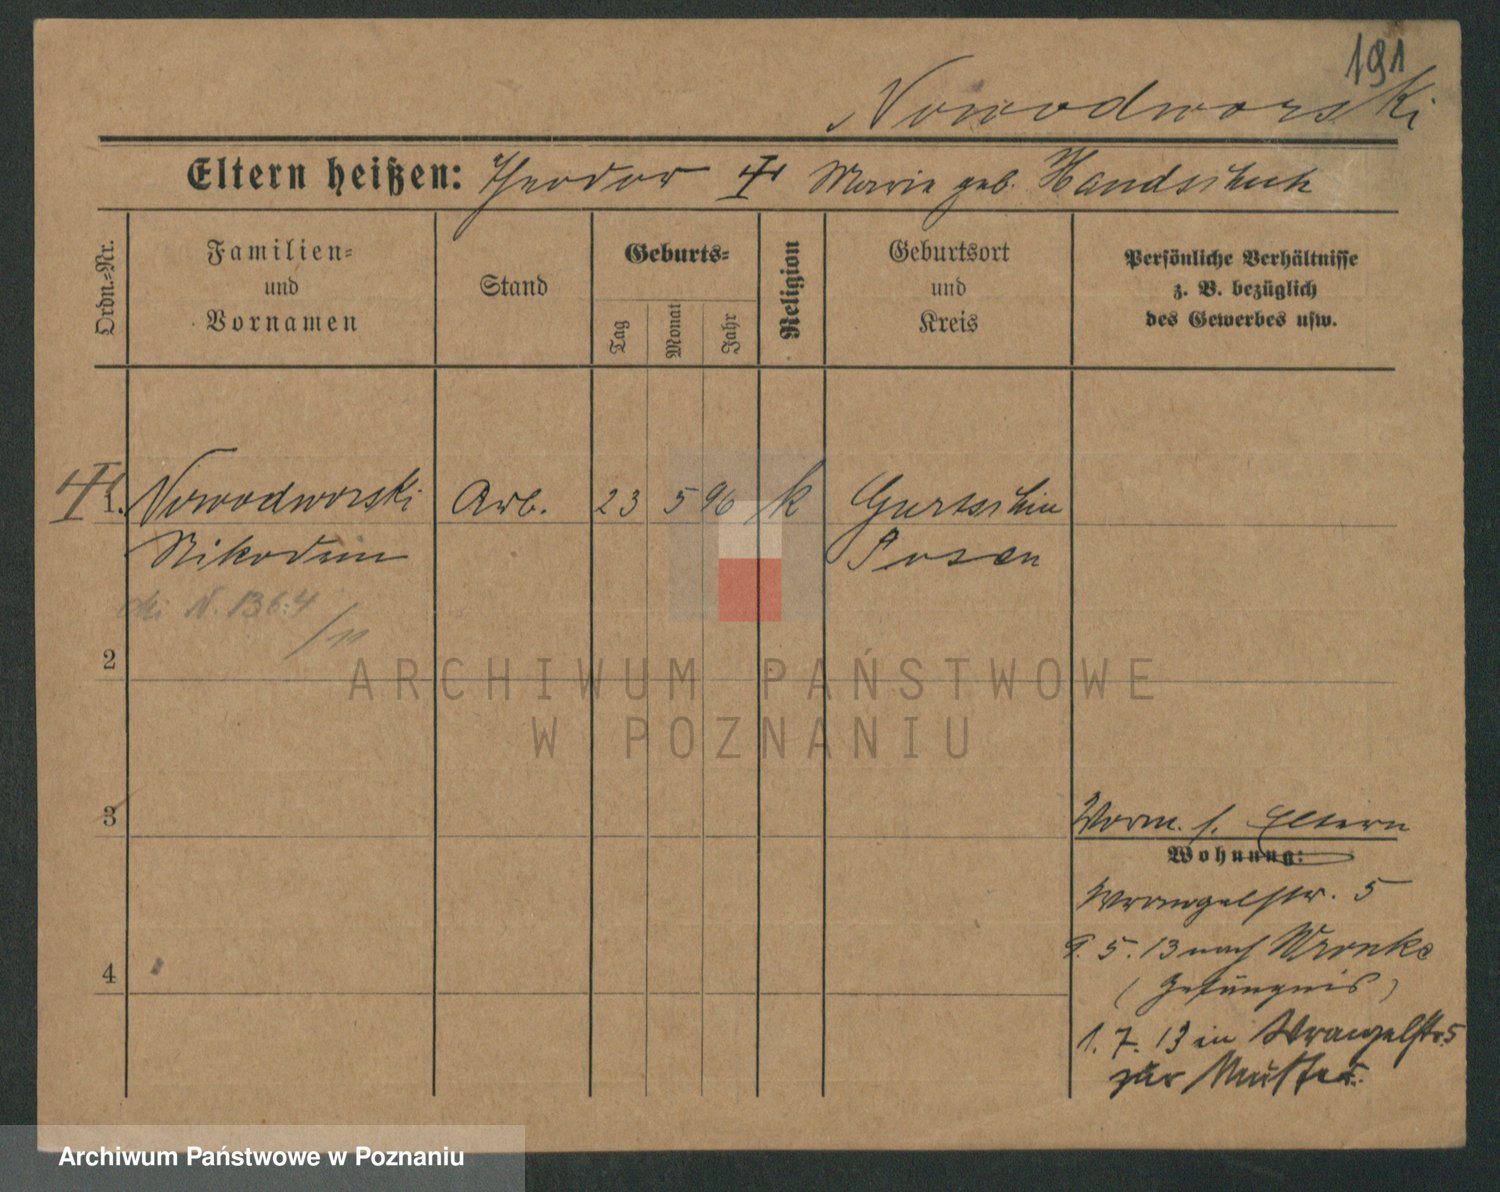 191
Nowodworski
Eltern heißen: Theodor Marie geb. Handschuh
Ordn.-Nr.
Familien- und Vornamen
Stand
Geburts-
Tag
Monat
Jahr
Religion
Geburtsort und Kreis
Persönliche Verhältnisse z. B. bezüglich des Gewerbes usw.
1. Nowodworski Arb. 23 5 96 k Gurtschin
Nikodem Posen
N. 136:4
/11
2
3
4
ARCHIWUM PAŃSTWOWE
W POZNANIU
Vorm. s. Eltern
Wohnung:
Wrangelstr. 5
9. 5. 13 nach Wronke
(Gefängnis)
1. 7. 13 in Wrangelstr. 5
zur Mutter.
Archiwum Państwowe w Poznaniu